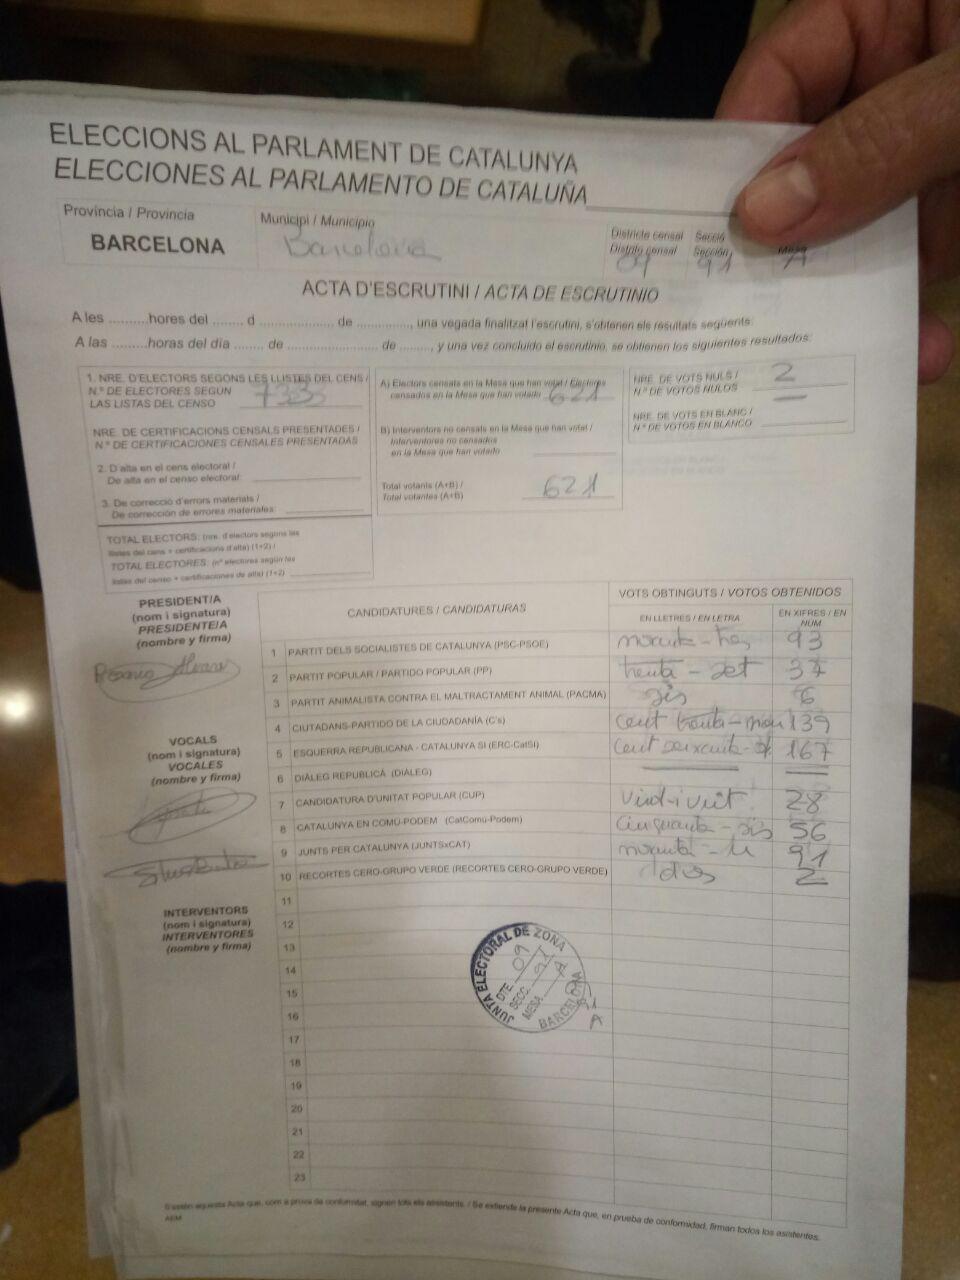 ELECCIONS AL PARLAMENT DE CATALUNYA
ELECCIONES AL PARLAMENTO DE CATALUÑA
Província / Provincia
BARCELONA
Municipi / Municipio
Barcelona
Districte censal
Distrito censal
09
Secció
Sección
91
Mesa
A
ACTA D'ESCRUTINI / ACTA DE ESCRUTINIO
A les ..........hores del ........ d .................... de ..............., una vegada finalitzat l'escrutini, s'obtenen els resultats següents:
A las .........horas del día ....... de ............................. de ........., y una vez concluido el escrutinio, se obtienen los siguientes resultados:
1. NRE. D'ELECTORS SEGONS LES LLISTES DEL CENS /
N.º DE ELECTORES SEGÚN
LAS LISTAS DEL CENSO
NRE. DE CERTIFICACIONS CENSALS PRESENTADES /
N.º DE CERTIFICACIONES CENSALES PRESENTADAS
2. D'alta en el cens electoral /
De alta en el censo electoral:
3. De correcció d'errors materials /
De corrección de errores materiales:
TOTAL ELECTORS: (nre. d'electors segons les
llistes del cens + certificacions d'alta) (1+2) /
TOTAL ELECTORES: (nº electores según las
listas del censo + certificaciones de alta) (1+2)
A) Electors censats en la Mesa que han votat / Electores
censados en la Mesa que han votado
621
B) Interventors no censats en la Mesa que han votat /
Interventores no censados
en la Mesa que han votado
Total votants (A+B) /
Total votantes (A+B)
621
NRE. DE VOTS NULS /
N.º DE VOTOS NULOS
2
NRE. DE VOTS EN BLANC /
N.º DE VOTOS EN BLANCO
PRESIDENT/A
(nom i signatura)
PRESIDENTE/A
(nombre y firma)
VOCALS
(nom i signatura)
VOCALES
(nombre y firma)
INTERVENTORS
(nom i signatura)
INTERVENTORES
(nombre y firma)
CANDIDATURES / CANDIDATURAS
VOTS OBTINGUTS / VOTOS OBTENIDOS
EN LLETRES / EN LETRA
EN XIFRES / EN NÚM
1 PARTIT DELS SOCIALISTES DE CATALUNYA (PSC-PSOE) noranta-tres 93
2 PARTIT POPULAR / PARTIDO POPULAR (PP) trenta-set 37
3 PARTIT ANIMALISTA CONTRA EL MALTRACTAMENT ANIMAL (PACMA) sis 6
4 CIUTADANS-PARTIDO DE LA CIUDADANÍA (C's) cent trenta-nou 139
5 ESQUERRA REPUBLICANA - CATALUNYA SÍ (ERC-CatSí) cent seixanta- 167
6 DIÀLEG REPUBLICÀ (DIÀLEG)
7 CANDIDATURA D'UNITAT POPULAR (CUP) vint-i-vuit 28
8 CATALUNYA EN COMÚ-PODEM (CatComú-Podem) cinquanta-sis 56
9 JUNTS PER CATALUNYA (JUNTSxCAT) noranta-u 91
10 RECORTES CERO-GRUPO VERDE (RECORTES CERO-GRUPO VERDE) dos 2
11
12
13
14
15
16
17
18
19
20
21
22
23
JUNTA ELECTORAL DE ZONA
DTE. 09
SECC. 91
MESA A
BARCELONA
S'estén aquesta Acta que, com a prova de conformitat, signen tots els assistents. / Se extiende la presente Acta que, en prueba de conformidad, firman todos los asistentes.